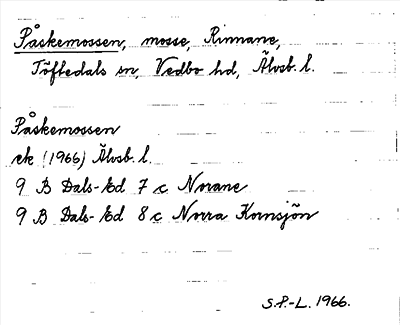 Påskemossen, mosse, Rinnane,
Töftedals sn, Vedbo hd, Älvsb. l.
Påskemossen
ek (1966) Älvsb. l.
9 B Dals-Ed 7 c Norane
9 B Dals-Ed 8 c Norra Kornsjön
S.P.-L. 1966.